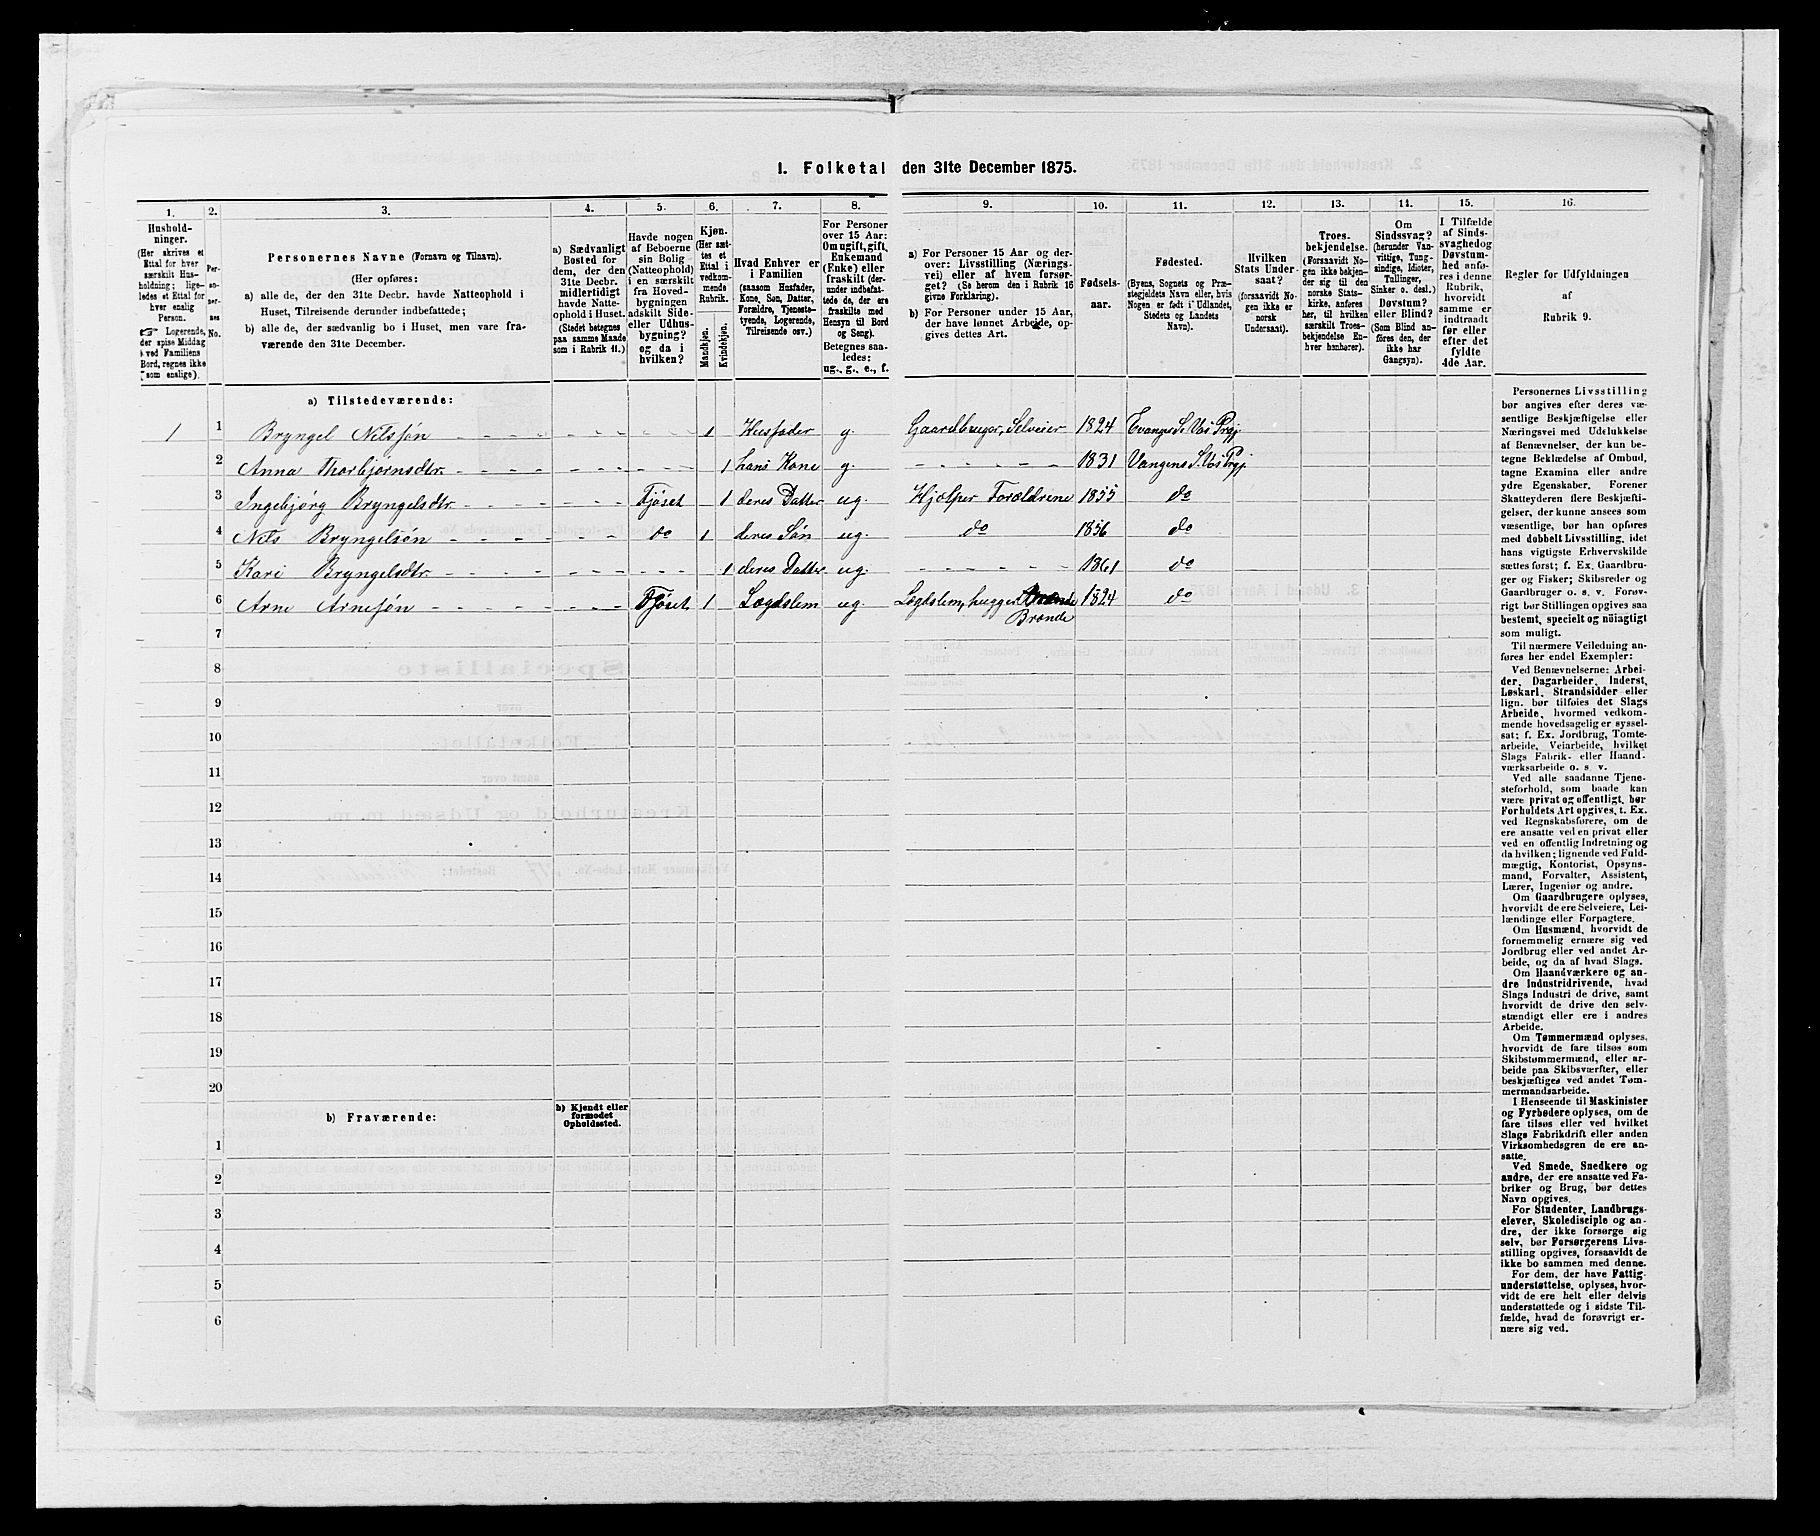 I. Folketal den 31te December 1875.
1. 2. 3. 4. 5. 6. 7. 8. 9. 10. 11. 12. 13. 14. 15. 16.
Hushold-
ninger.
(Her skrives et
Ettal for hver
særskilt Hus-
holdning; lige-
ledes et Ettal for
hver enslig
Person.
☞ Logerende,
der spise Middag
ved Familiens
Bord, regnes ikke
som enslige).
Per-
so-
ner-
nes
No.
Personernes Navne (Fornavn og Tilnavn).
(Her opføres:
a) alle de, der den 31te Decbr. havde Natteophold i
Huset, Tilreisende derunder indbefattede;
b) alle de, der sædvanlig bo i Huset, men vare fra-
værende den 31te December.
a) Sædvanligt
Bosted for
dem, der den
31te Decbr.
midlertidigt
havde Natte-
ophold i Huset.
(Stedet betegnes
paa samme Maade
som i Rubrik 11.)
Havde nogen
af Beboerne
sin Bolig
(Natteophold)
i en særskilt
fra Hoved-
bygningen
adskilt Side-
eller Udhus-
bygning?
og da i
hvilken?
Kjøn.
(Her sæt-
tes et
Ettal i
vedkom-
mende
Rubrik.
Mandkjøn.
Kvindekjøn.
Hvad Enhver er
i Familien
(saasom Husfader,
Kone, Søn, Datter,
Forældre, Tjeneste-
tyende, Logerende,
Tilreisende osv.)
For Personer
over 15 Aar:
Om ugift, gift,
Enkemand
(Enke) eller
fraskilt (der-
under indbefat-
tede de, der ere
fraskilte med
Hensyn til Bord
og Seng).
Betegnes saa-
ledes:
ug., g., e., f.
a) For Personer 15 Aar og der-
over: Livsstilling (Nærings-
vei) eller af hvem forsør-
get? (Se herom den i Rubrik 16
givne Forklaring).
b) For Personer under 15 Aar,
der have lønnet Arbeide, op-
gives dettes Art.
Fødsels-
aar.
Fødested.
(Byens, Sognets og Præ-
stegjeldets Navn eller, hvis
Nogen er født i Udlandet,
Stedets og Landets
Navn).
Hvilken
Stats Under-
saat?
(forsaavidt No-
gen ikke er
norsk
Undersaat).
Troes-
bekjendelse.
(Forsaavidt No-
gen ikke bekjen-
der sig til den
norske Stats-
kirke, anføres
her, til hvilken
særskilt Troes-
bekjendelse En-
hver henhører).
Om
Sindssvag?
(herunder Van-
vittige, Tung-
sindige, Idioter,
Tullinger,
Sinker o. desl.)
Døvstum?
eller Blind?
(Som Blind an-
føres den, der
ikke har
Gangsyn).
I Tilfælde
af Sinds-
svaghed og
Døvstum-
hed anfø-
res i denne
Rubrik,
hvorvidt
samme er
indtraadt
før eller
efter det
fyldte
4de Aar.
Regler for Udfyldningen
af
Rubrik 9.
a) Tilstedeværende:
1 1 Bryngel Nilssøn 1 Husfader g. Gaardbruger, Selveier 1824 Evanger S. Vos Prgj.
2 Anna Thorbjørnsdtr. 1 hans Kone g. 1831 Vangens S. Vos Prgj.
3 Ingebjørg Bryngelsdtr. Fjøset 1 deres Datter ug. Hjælper Forældrene 1855 do
4 Nils Bryngelsøn do 1 deres Søn ug. do 1856 do
5 Kari Bryngelsdtr. 1 deres Datter ug. 1861 do
6 Arne Arnesøn Fjøset 1 Lægdslem ug. Lægdslem, hugger Brænde 1824 do
7
8
9
10
11
12
13
14
15
16
17
18
19
20
b) Fraværende:
b) Kjendt eller
formodet
Opholdssted.
1
2
3
4
5
6
Personernes Livsstilling
bør angives efter deres væ-
sentlige Beskjæftigelse eller
Næringsvei med Udelukkelse
af Benævnelser, der kun be-
tegne Beklædelse af Ombud,
tagne Examina eller andre
ydre Egenskaber. Forener
Skatteyderen flere Beskjæfti-
gelser, der kunne ansees som
væsentlige, bør han opføres
med dobbelt Livsstilling, idet
hans vigtigste Erhvervskilde
sættes først; f. Ex. Gaardbru-
ger og Fisker; Skibsreder og
Gaardbruger o. s. v. Forøv-
rigt bør Stillingen opgives saa
bestemt, specielt og nöiagtigt
som muligt.
Til nærmere Veiledning an-
føres her endel Exempler:
Ved Benævnelserne: Arbei-
der, Dagarbeider, Inderst,
Løskarl, Strandsidder eller
lign. bør tilføies det Slags
Arbeide, hvormed vedkom-
mende hovedsagelig er syssel-
sat; f. Ex. Jordbrug, Tomte-
arbeide, Veiarbeide, hvilket
Slags Fabrik- eller Haand-
værksarbeide o. s. v.
Ved alle saadanne Tjene-
steforhold, som baade kan
være privat og offentligt, bør
Forholdets Art opgives, t. Ex.
ved Regnskabsførere, om de
ere ansatte ved en privat eller
ved en offentlig Indretning og
da hvilken; lignende ved Fuld-
mægtig, Kontorist, Opsyns-
mand, Forvalter, Assistent,
Lærer, Ingeniør og andre.
Om Gaardbrugere oplyses,
hvorvidt de ere Selveiere, Lei-
lændinge eller Forpagtere.
Om Husmænd, hvorvidt de
fornemmelig ernære sig ved
Jordbrug eller ved andet Ar-
beide, og da af hvad Slags.
Om Haandværkere og an-
dre Industridrivende, hvad
Slags Industri de drive, samt
hvorvidt de drive den selv-
stændigt eller ere i andres
Arbeide.
Om Tømmermænd oplyses,
hvorvidt de fare tilsøs som
Skibstømmermænd, eller ar-
beide paa Skibsværfter, eller
beskjæftiges ved andet Tøm-
mermandsarbeide.
I Henseende til Maskinister
og Fyrbødere oplyses, om de
fare tilsøs eller ved hvilket
Slags Fabrikdrift eller anden
Virksomhedsgren de ere an-
satte.
Ved Smede, Snedkere og
andre, der ere ansatte ved Fa-
briker og Brug, bør dettes
Navn opgives.
For Studenter, Landbrugs-
elever, Skoledisciple og an-
dre, der ikke forsørge sig
selv, bør Forsørgerens Livs-
stilling opgives, forsaavidt de
ikke bo sammen med denne.
For dem, der have Fattig-
understøttelse, oplyses, hvor-
vidt de ere helt eller delvis
understøttede og i sidste Til-
fælde, hvad de forøvrigt er-
nære sig ved.